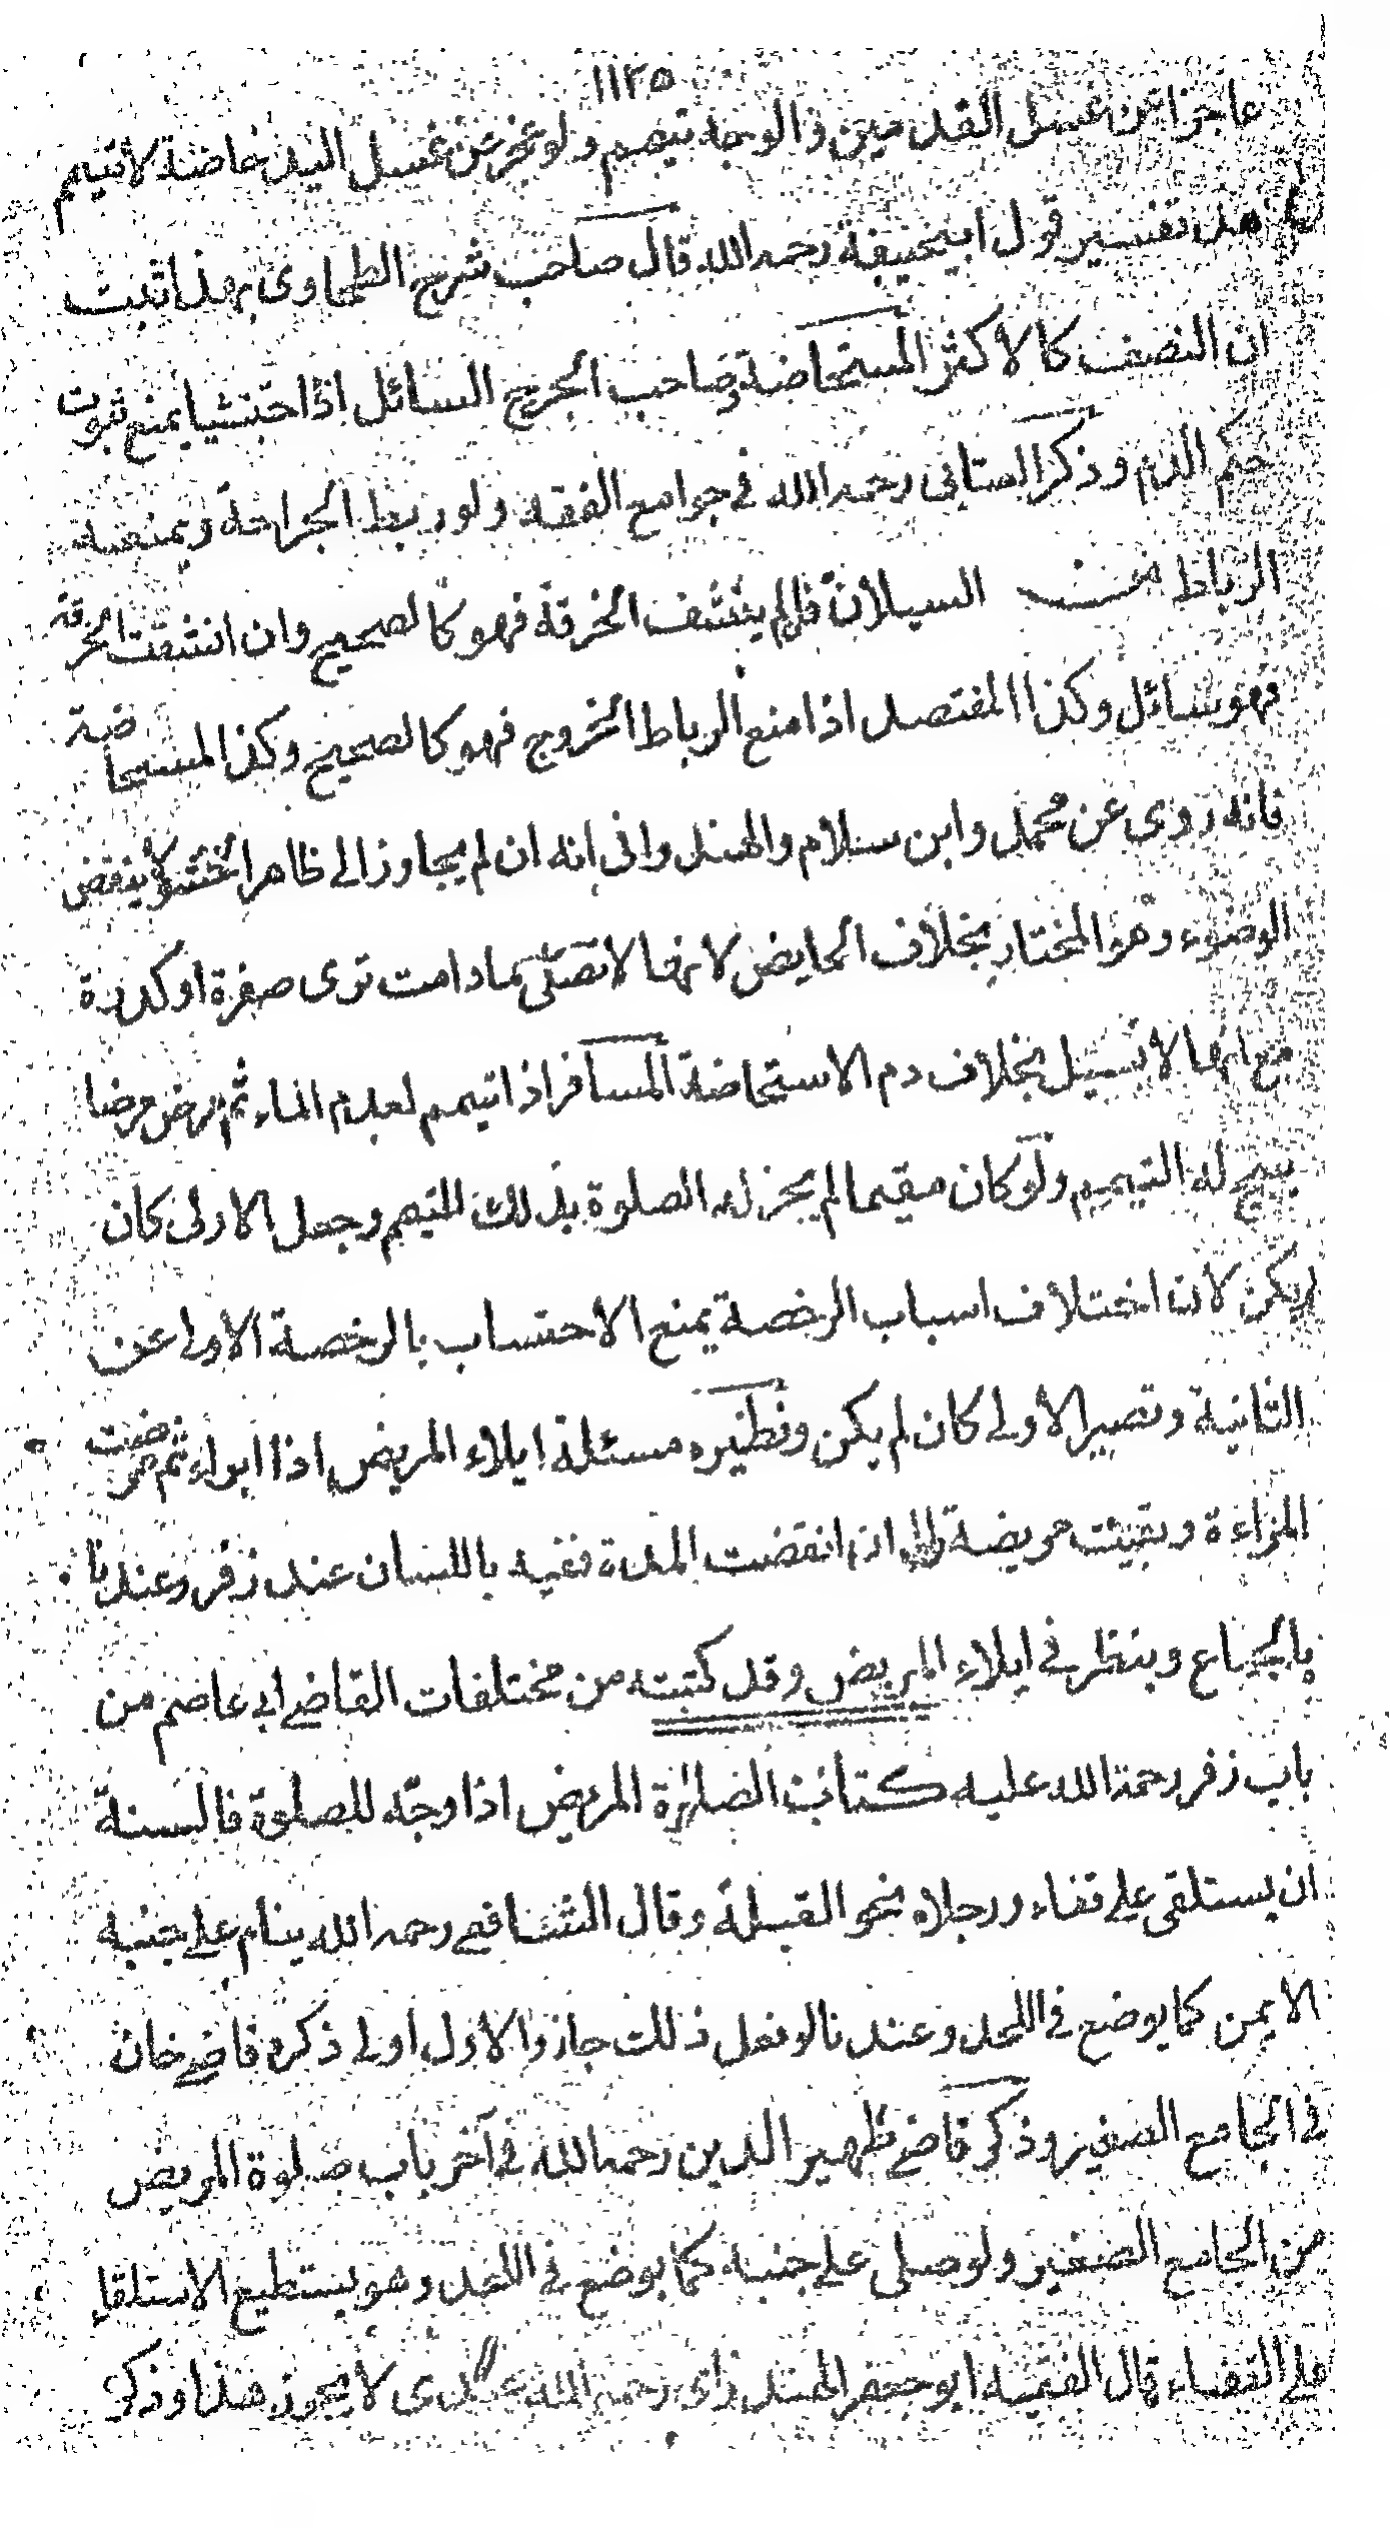 ١١٢٥
عاجزا عن غسل القدمين والوجه تيمم ولو عجز عن غسل اليد خاصة لا تيمم
هذا تفسير قول ابيحنيفة رحمه الله قال صاحب شرح الطحاوى بهذا ثبت
ان النصف كالاكثر المستحاضة وصاحب الجرح السائل اذا احتشيا يمنع ثبوت
حكم الدم وذكر العتابى رحمه الله فى جوامع الفقه ولو ربط الجراحة ويمنعه
الرباط عن السيلان فالم ينشف الخرقة فهو كالصحيح وان انتشفت الخرقة
فهو سائل وكذا المفتصد اذا منع الرباط الخروج فهو كالصحيح وكذا المستحاضة
فانه روى عن محمد وابن سلام والهندوانى انه ان لم يجاوز الى ظاهر الخشو لا ينقض
الوضوء وهو المختار بخلاف الحايض لانها لا تصلى ما دامت ترى صفرة او كدرة
مع انها لا تسيل بخلاف دم الاستحاضة المسافر اذا تيمم لعدم الماء ثم مرض مرضا
يبيح له التيمم ولو كان مقيما لم يجز له الصلوة بذلك التيمم وجعل الاولى كان
لم يكن لان اختلاف اسباب الرخصة يمنع الاحتساب بالرخصة الاولى عن
الثانية وتصير الاولى كان لم يكن ونظيره مسئلة ايلاء المريض اذا ابراء ثم مرضت
المراءة وبقيت مريضة الى ان انقضت المدة ففيه باللسان عند زفر وعندنا
بالجماع وينظر فى ايلاء المريض وقد كتبته من مختلفات القاضى ابى عاصم من
باب زفر رحمة الله عليه كتاب الصلوة المريض اذا وجّه للصلوة فالسنة
ان يستلقى على قفاء ورجلاه نحو القبلة وقال الشافعى رحمه الله ينام على جنبه
الايمن كما يوضع فى اللحد وعندنا لو فعل ذلك جاز والاول اولى ذكره قاضى خان
فى الجامع الصغير وذكر قاضى ظهير الدين رحمه الله فى آخر باب صلوة المريض
من الجامع الصغير ولو صلى على جنبه كما يوضع فى اللحد وهو يستطيع الاستلقاء
على القفاء قال الفقيه ابو جعفر الهندوانى رحمه الله عندى لا يجوز هذا وذكر